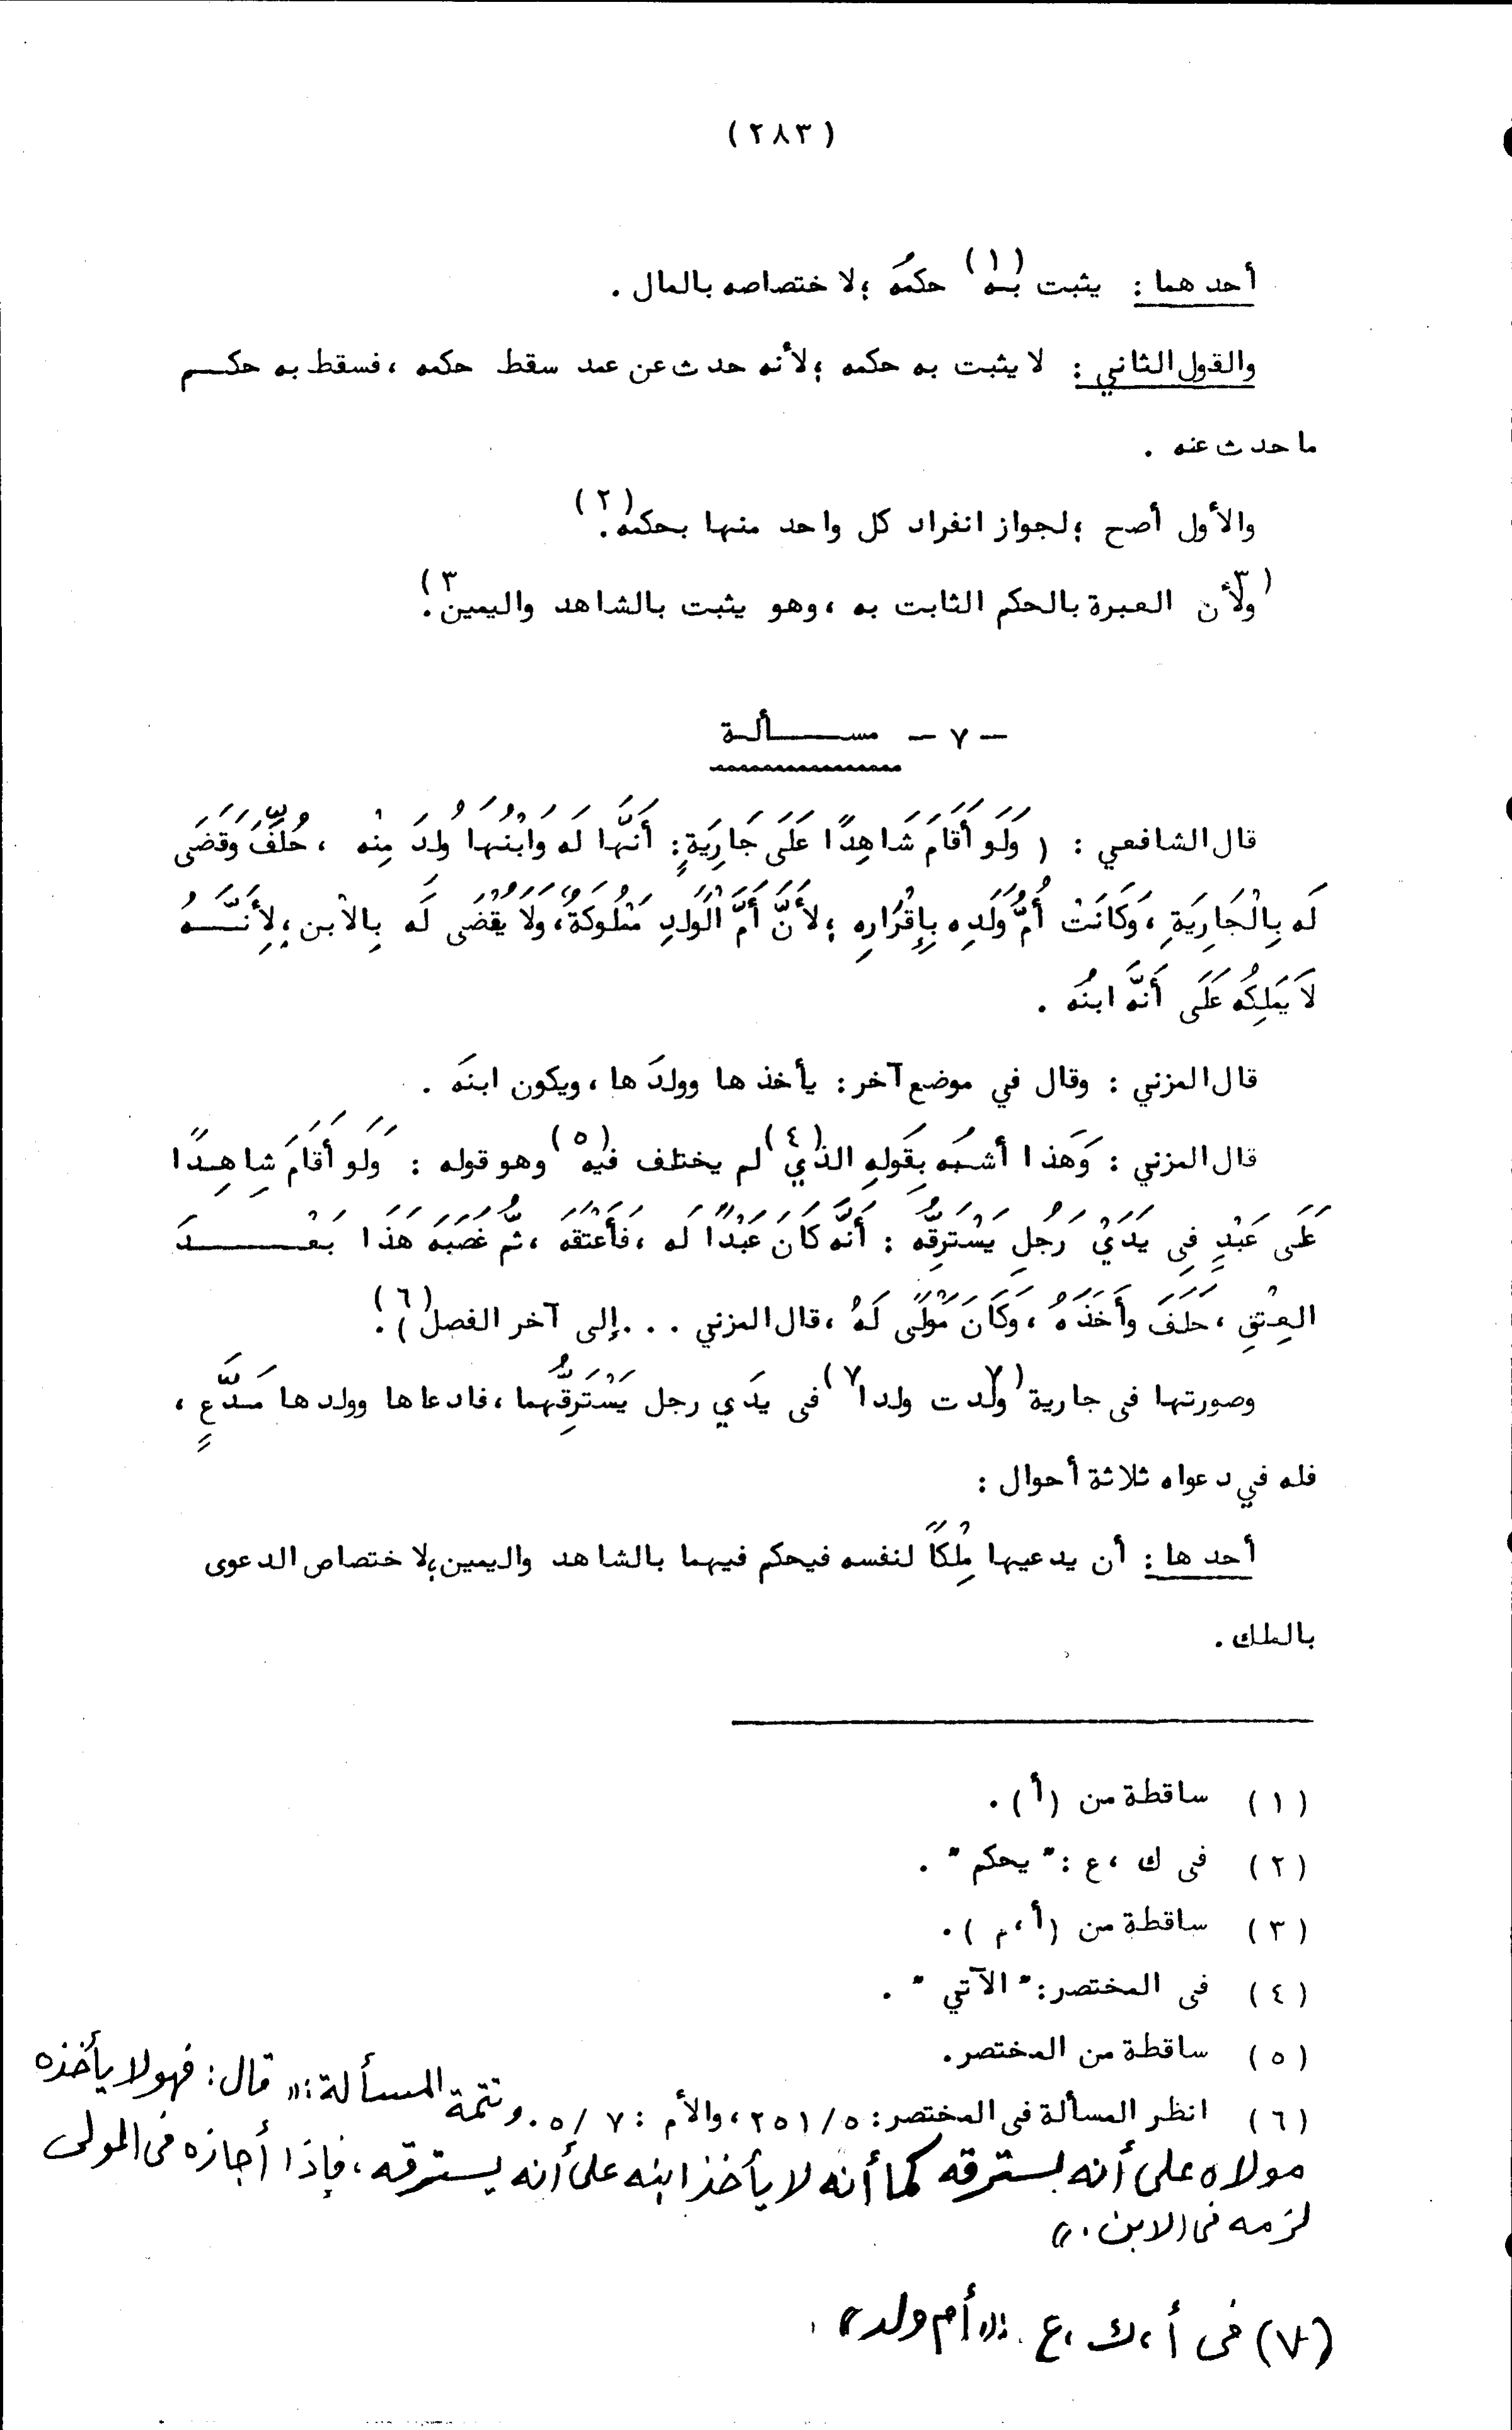 (٢٨٣)
أحدهما : يثبت به (١) حكمُه ؛ لاختصاصه بالمال .
والقول الثاني : لا يثبت به حكمه ؛ لأنه حدث عن عمد سقط حكمه ، فسقط به حكـــم
ما حدث عنه .
والأول أصح ؛ لجواز انفراد كل واحد منها بحكمه (٢) .
(٣ ولأن العبرة بالحكم الثابت به ، وهو يثبت بالشاهد واليمين ٣) .
– ٧ – مســـــألة
قال الشافعي : ( وَلَو أَقَامَ شَاهِدًا عَلَى جَارِيَةٍ : أَنَّهَا لَه وَابْنُهَا وُلِدَ مِنْه ، حُلِّفَ وَقَضَى
لَه بِالْجَارِيَةِ ، وَكَانَتْ أُمُّ وَلَدِه بِإِقْرَارِه ؛ لأَنَّ أُمَّ الْوَلَدِ مَمْلُوكَةٌ ، وَلَا يُقْضَى لَه بِالاْبن ؛ لِأَنَّـــهُ
لاَ يَملِكُه عَلَى أَنَّه ابنُه .
قال المزني : وقال في موضع آخر : يأخذها وولدَها ، ويكون ابنَه .
قال المزني : وَهَذا أشبَه بِقَولِهِ الذي (٤) لم يختلف فيه (٥) وهو قوله : وَلَو أَقَامَ شِاهِـدًا
عَلَى عَبْدٍ فِى يَدَيْ رَجُلٍ يَسْتَرِقُّه : أَنَّه كَانَ عَبْدًا لَه ، فَأَعْتَقَه ، ثُمَّ غَصَبَه هَذَا بَعْـــــــدَ
العِتْقِ ، حَلَفَ وأَخَذَهُ ، وَكَانَ مَوْلًى لَهُ ، قال المزني . . . إلى آخر الفصل (٦) ) .
وصورتها فى جارية (٧ ولدت ولدا ٧) فى يدَي رجل يَسْتَرِقُّهما ، فادعاها وولدها مُـدَّعٍ ،
فله في دعواه ثلاثة أحوال :
أحدها : أن يدعيها مِلْكًا لنفسه فيحكم فيهما بالشاهد واليمين ؛ لاختصاص الدعوى
بالملك .
(١) ساقطة من (أ) .
(٢) فى ك ، ع : " يحكم " .
(٣) ساقطة من (أ ، م ) .
(٤) فى المختصر : " الآتي " .
(٥) ساقطة من المختصر .
(٦) انظر المسألة فى المختصر : ٢٥١/٥ ، والأم : ٧ /٥ . وتتمة المسألة : « قال : فهو لا يأخذه
مولاه على أنه يسترقه كما أنه لا يأخذ ابنه على أنه يسترقه ، فإذا أجازه فى المولى
لزمه فى الابن . »
(٧) فى أ ، ك ، ع : « أم ولد » .